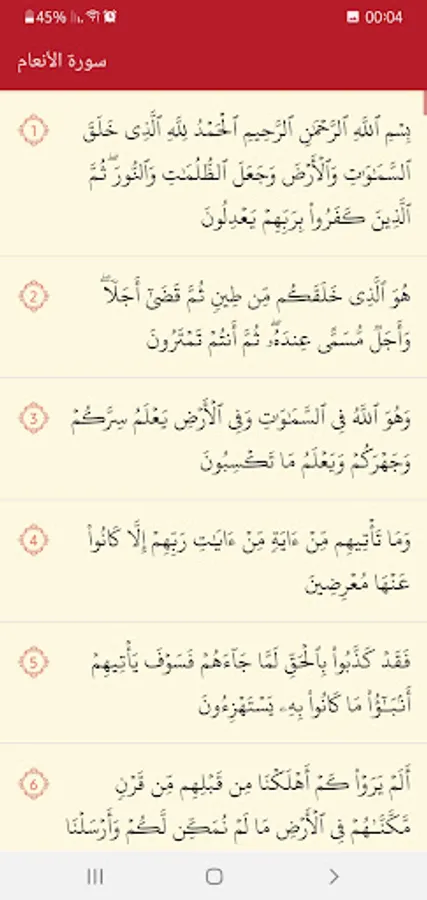 45% 00:04
سورة الأنعام
بِسْمِ ٱللَّهِ ٱلرَّحْمَٰنِ ٱلرَّحِيمِ ٱلْحَمْدُ لِلَّهِ ٱلَّذِى خَلَقَ 1
ٱلسَّمَٰوَٰتِ وَٱلْأَرْضَ وَجَعَلَ ٱلظُّلُمَٰتِ وَٱلنُّورَ ۖ ثُمَّ
ٱلَّذِينَ كَفَرُوا۟ بِرَبِّهِمْ يَعْدِلُونَ
هُوَ ٱلَّذِى خَلَقَكُم مِّن طِينٍ ثُمَّ قَضَىٰٓ أَجَلًا ۖ 2
وَأَجَلٌ مُّسَمًّى عِندَهُۥ ۖ ثُمَّ أَنتُمْ تَمْتَرُونَ
وَهُوَ ٱللَّهُ فِى ٱلسَّمَٰوَٰتِ وَفِى ٱلْأَرْضِ يَعْلَمُ سِرَّكُمْ 3
وَجَهْرَكُمْ وَيَعْلَمُ مَا تَكْسِبُونَ
وَمَا تَأْتِيهِم مِّنْ ءَايَةٍ مِّنْ ءَايَٰتِ رَبِّهِمْ إِلَّا كَانُوا۟ 4
عَنْهَا مُعْرِضِينَ
فَقَدْ كَذَّبُوا۟ بِٱلْحَقِّ لَمَّا جَآءَهُمْ فَسَوْفَ يَأْتِيهِمْ 5
أَنۢبَٰٓؤُا۟ مَا كَانُوا۟ بِهِۦ يَسْتَهْزِءُونَ
أَلَمْ يَرَوْا۟ كَمْ أَهْلَكْنَا مِن قَبْلِهِم مِّن قَرْنٍ 6
مَّكَّنَّٰهُمْ فِى ٱلْأَرْضِ مَا لَمْ نُمَكِّن لَّكُمْ وَأَرْسَلْنَا